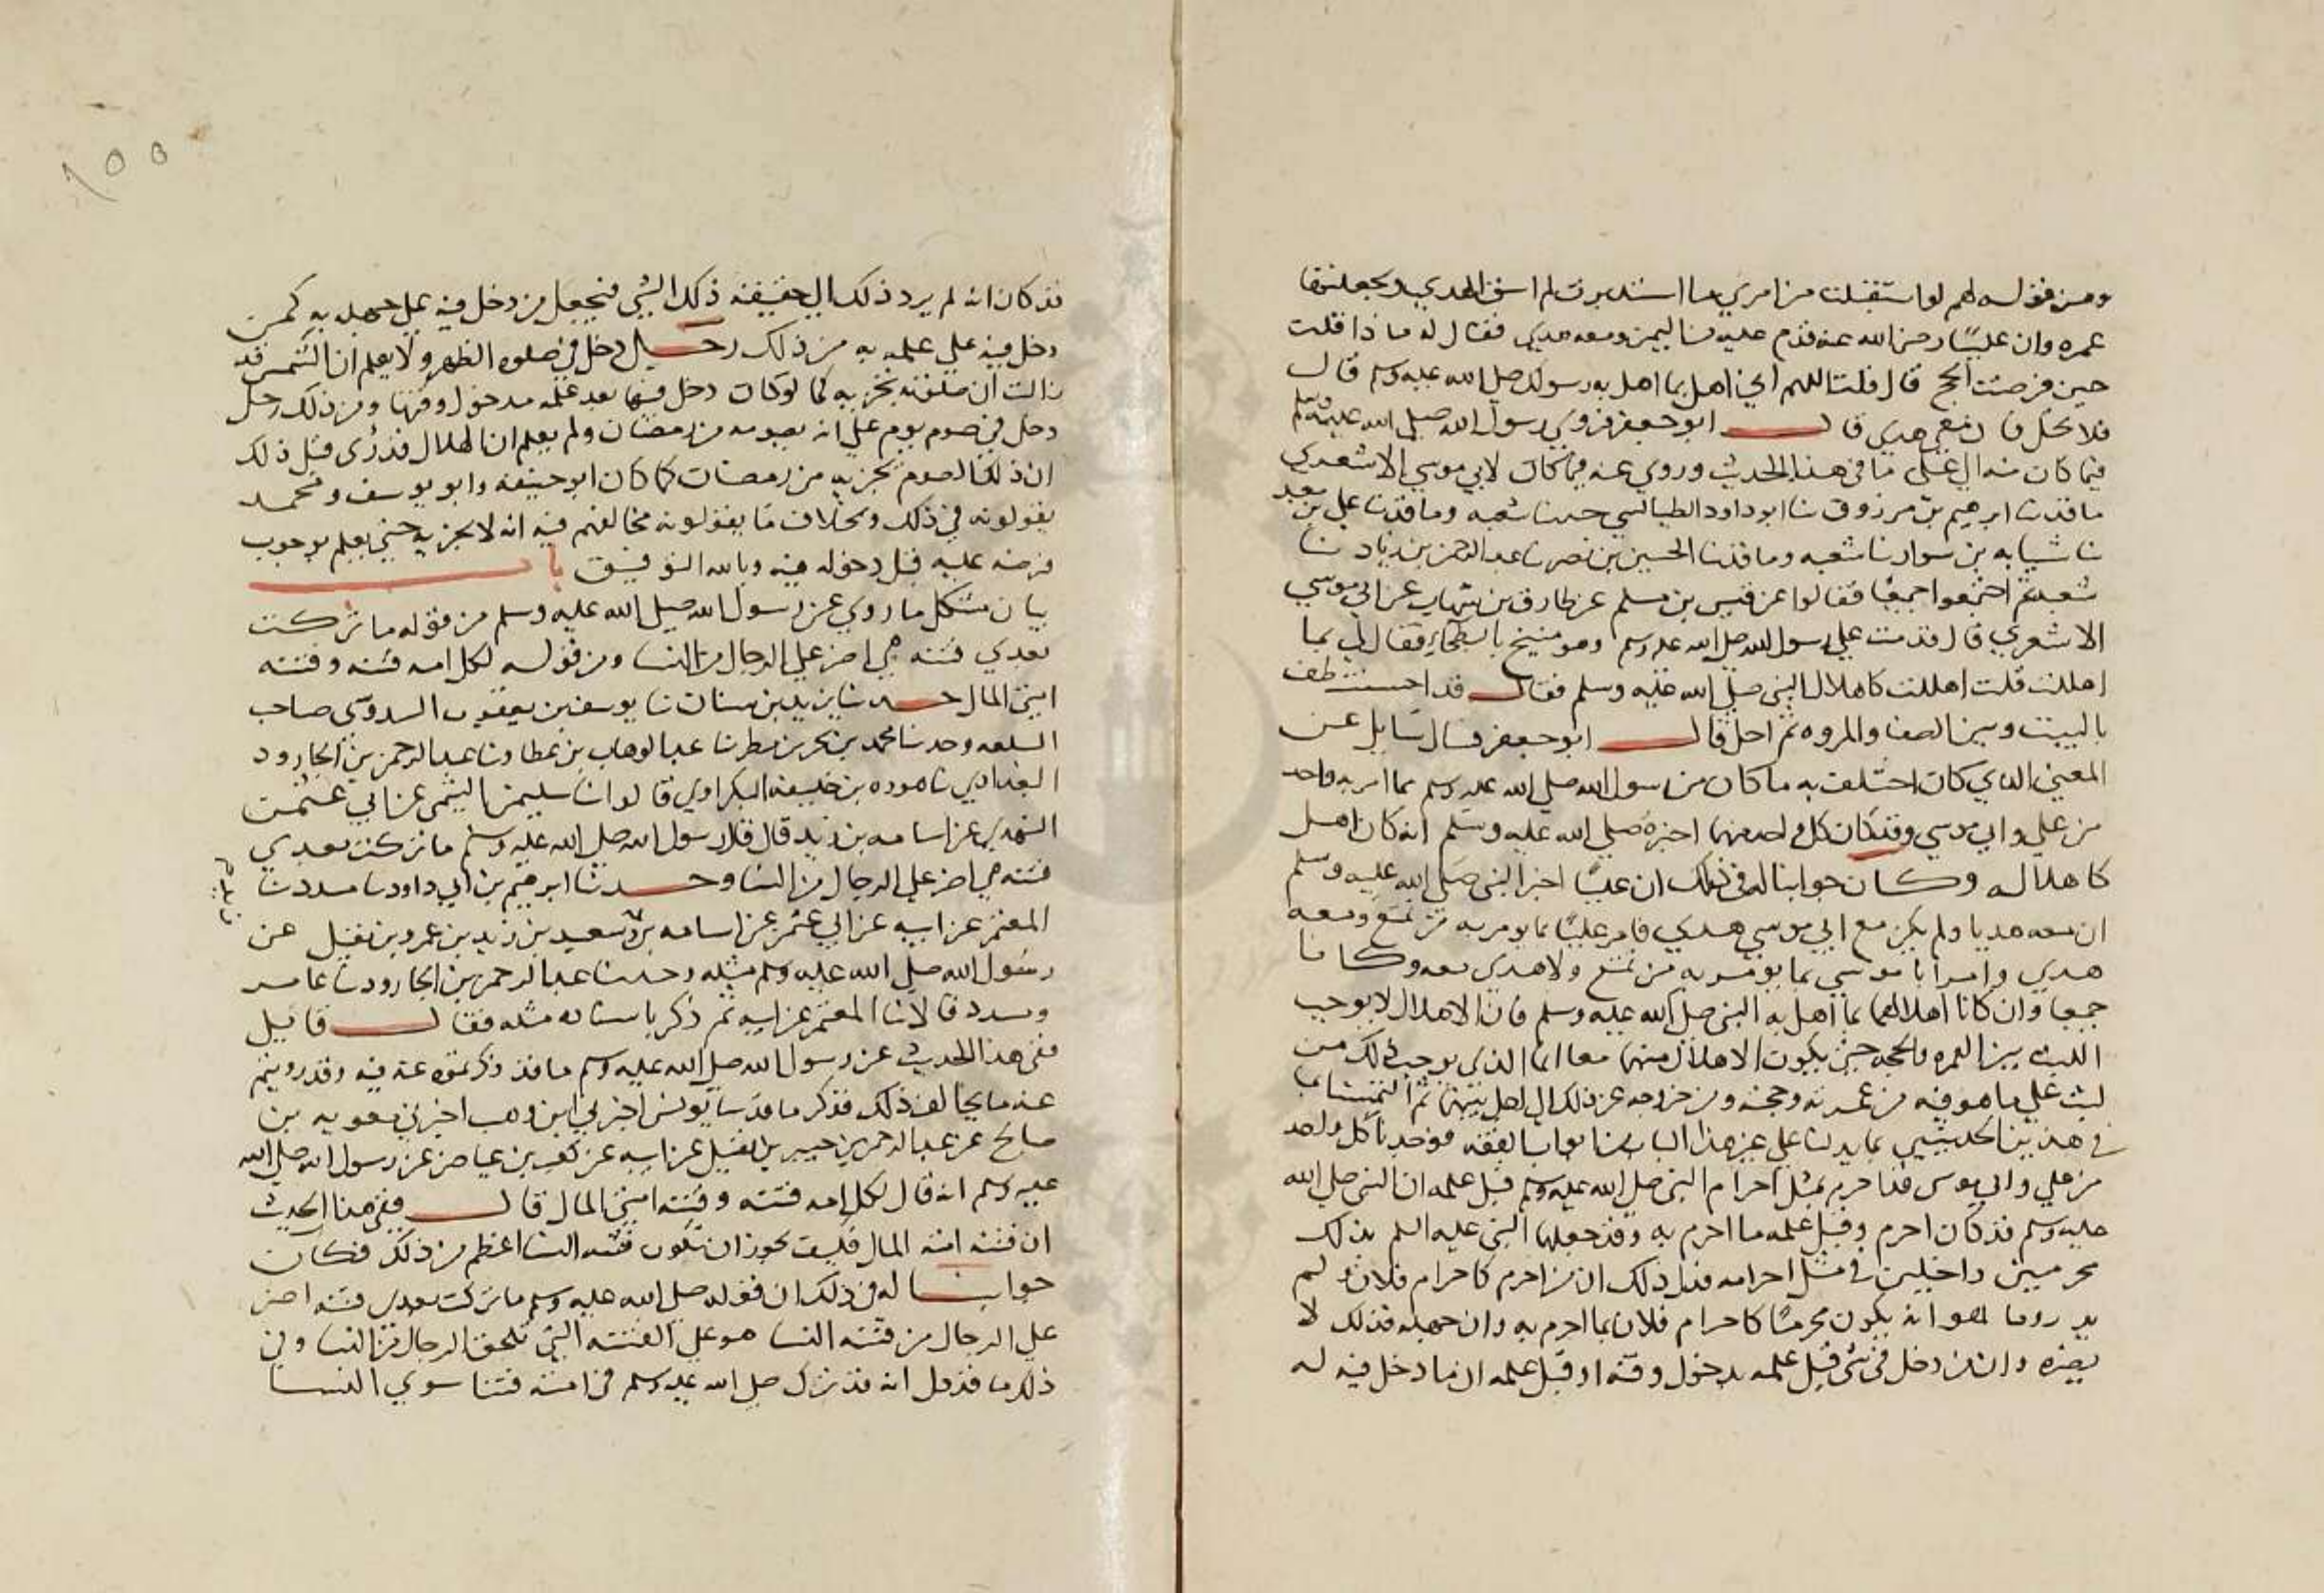 ومن قوله لهم لو استقبلت من امري ما استدبرت لم اسق الهدي ولجعلتها
عمره وان عليًا رضي الله عنه قدم عليه من اليمن ومعه هدي فقال له ماذا قلت
حين فرضت الحج قال قلت اللهم اني اهل بما اهل به رسولك صلى الله عليه وسلم قال
فلا تحل فان معي هدي قال ابو جعفر فروي رسول الله صلى الله عليه وسلم
فيما كان منه الى علي ما في هذا الحديث وروي عنه فيما كان لابي موسي الاشعري
ما قد نا ابرهيم بن مرزوق نا ابو داود الطيالسي حدثنا شعبه وما قد نا علي بن معبد
نا شبابه بن سوار نا شعبه وما قد نا الحسين بن نصر نا عبد الرحمن بن زياد نا
شعبه ثم اجتمعوا جميعا فقالوا عن قيس بن مسلم عن طارق بن شهاب عن ابي موسي
الاشعري قال قدمت على رسول الله صلى الله عليه وسلم وهو منيخ بالبطحاء فقال لي بما
اهللت قلت اهللت كاهلال النبي صلى الله عليه وسلم فقال قد احسنت طف
بالبيت وبين الصفا والمروه ثم احل قال ابو جعفر فسال سايل عن
المعني الذي كان اختلف به ما كان من رسول الله صلى الله عليه وسلم مما امر به واحد
من علي وابي موسي وقد كان كل واحد منهما اخبره صلى الله عليه وسلم انه كان اهل
كاهلاله وكان جوابنا له في ذلك ان عليًا اخبر النبي صلى الله عليه وسلم
ان معه هديا ولم يكن مع ابي موسي هدي فامر عليًا بما يومر به من تمتع ومعه
هدي وامر ابا موسي بما يومر به من تمتع ولا هدي معه وكانا
جميعا وان كانا اهلالهما بما اهل به النبي صلى الله عليه وسلم فان الاهلال لا يوجب
اللبث بين العمره والحجه حتى يكون الاهلال منهما معا انما الذي يوجب ذلك من
لبث على ما هو فيه من عمرته وحجته ومن خروجه عن ذلك الى احل بينهما ثم التمسنا
في هذين الحديثين بما يدلنا على غير هذا الباب من ابواب الفقه فوجدنا كل واحد
من علي وابي موسى قد احرم بمثل احرام النبي صلى الله عليه وسلم قبل علمه ان النبي صلى الله
عليه وسلم قد كان احرم وقبل علمه ما احرم به وقد جعلهما النبي عليه السلم بذلك
محرمين داخلين في مثل احرامه فدل ذلك ان من احرم كاحرام فلان ولم
يدر وما هو انه يكون محرمًا كاحرام فلان بما احرم به وان جهله فذلك لا
يضره وان من دخل في شى قبل علمه بدخول وقته او قبل علمه ان ما دخل فيه له
قد كان انه لم يرد ذلك الى حقيقة ذلك الشي فيجعل من دخل فيه على جهله به كمن
دخل فيه علي علمه به من ذلك رجل دخل في صلوه الظهر ولا يعلم ان الشمس قد
زالت ان صلوته تجزيه كما لو كان دخل فيها بعد علمه بدخول وقتها ومن ذلك رجل
دخل في صوم يوم على انه يصومه من رمضان ولم يعلم ان الهلال قد رُى قبل ذلك
ان ذلك الصوم يجزيه من رمضان كما كان ابو حنيفه وابو يوسف ومحمد
يقولونه في ذلك وبخلاف ما يقولونه مخالفهم فيه انه لا يجزيه حتى يعلم بوجوب
فرضه عليه قبل دخوله فيه وبالله التوفيق باب
بيان مشكل ما روي عن رسول الله صلى الله عليه وسلم من قوله ما تركت
بعدي فتنه هي اضر على الرجال من النسا ومن قوله لكل امه فتنه وفتنه
امتي المال حدثنا يزيد بن سنان نا يوسف بن يعقوب السدوسى صاحب
السلعه وحدثنا محمد بن بحر بن مطر نا عبد الوهاب بن عطا ونا عبد الرحمن بن الجارود
البغدادي نا هوده بن خليفه البكراوي قالوا نا سليمن التيمي عن ابي عثمن
النهدي عن اسامه بن زيد قال قال رسول الله صلى الله عليه وسلم ما تركت بعدي
فتنه هي اضر على الرجال من النسا وحدثنا ابرهيم بن ابي داود نا مسدد نا
المعتمر عن ابيه عن ابي عثمن عن اسامه وسعيد بن زيد بن عمرو بن نفيل عن
رسول الله صلى الله عليه وسلم مثله وحدثنا عبد الرحمن بن الجارود نا عاصم
ومسدد قالا نا المعتمر عن ابيه ثم ذكر باسناده مثله فقال قايل
ففي هذا الحديث عن رسول الله صلى الله عليه وسلم ما قد ذكرتموه عنه فيه وقد رويتم
عنه ما يخالف ذلك فذكر ما قد نا يونس اخبرني ابن وهب اخبرني معويه بن
صالح عن عبد الرحمن بن جبير بن نفيل عن ابيه عن كعب بن عياض عن رسول الله صلى الله
عليه وسلم انه قال لكل امه فتنه وفتنه امتي المال قال ففي هذا الحديث
ان فتنه امته المال فكيف يجوز ان تكون فتنه النسا اعظم من ذلك فكان
جوابنا له في ذلك ان قوله صلى الله عليه وسلم ما تركت بعدي فتنه اضر
على الرجال من فتنه النسا هو على الفتنه التي تلحق الرجال من النسا وفي
ذلك ما قد دل انه قد ترك صلى الله عليه وسلم في امته فتنا سوي النسا